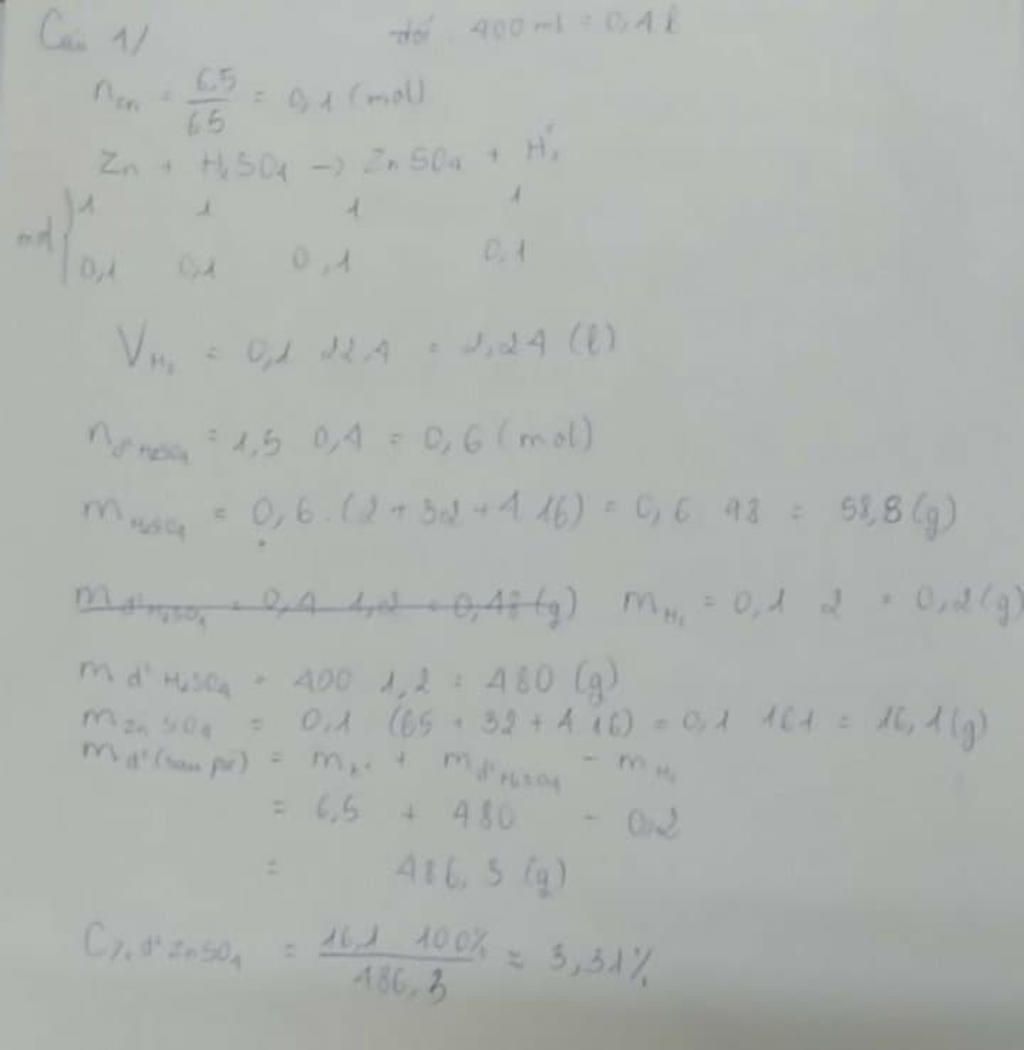 Câu 1/ đổi 400 ml = 0,4 l
n Zn = 6,5/65 = 0,1 (mol)
Zn + H₂SO₄ → ZnSO₄ + H₂
1 1 1 1
mol 0,1 0,1 0,1 0,1
V H₂ = 0,1 22,4 = 2,24 (l)
n d² H₂SO₄ = 1,5 0,4 = 0,6 (mol)
m H₂SO₄ = 0,6 . (2 + 32 + 4 16) = 0,6 98 = 58,8 (g)
m d² H₂SO₄ = 0,4 1,2 = 0,48 (g) m H₂ = 0,1 2 = 0,2 (g)
m d² H₂SO₄ = 400 1,2 = 480 (g)
m ZnSO₄ = 0,1 (65 + 32 + 4 16) = 0,1 161 = 16,1 (g)
m d² (sau pứ) = m + m d² H₂SO₄ - m H₂
= 6,5 + 480 - 0,2
= 486,3 (g)
C% d² ZnSO₄ = 16,1 100%/486,3 = 3,31%